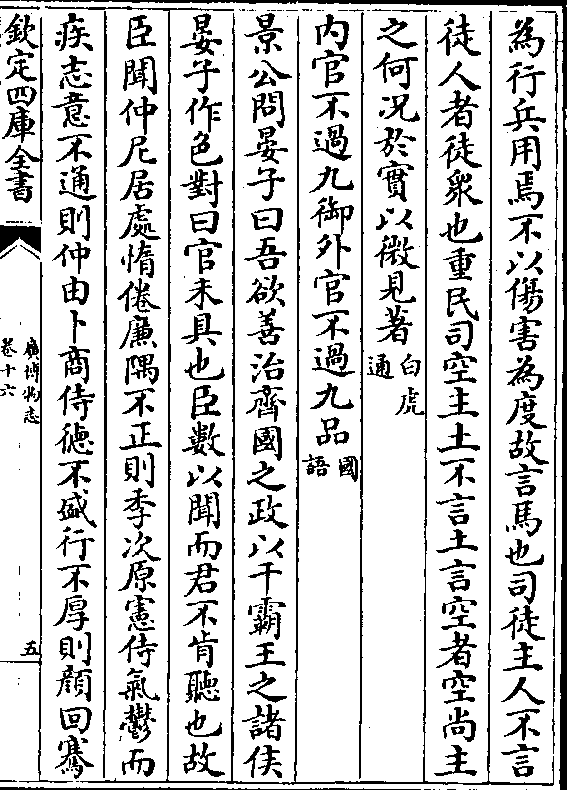 為行兵用焉不以傷害為度故言馬也司徒主人不言
徒人者徒衆也重民司空主土不言土言空者空尚主
之何况於實以微見著白虎通
内官不過九御外官不過九品國語
景公問晏子曰吾欲善治齊國之政以干霸王之諸侯
晏子作色對曰官未具也臣數以聞而君不肯聽也故
臣聞仲尼居處惰倦廉隅不正則季次原憲侍氣鬱而
疾志意不通則仲由卜商侍德不盛行不厚則顔回騫
欽定四庫全書
廣博物志
卷十六
五